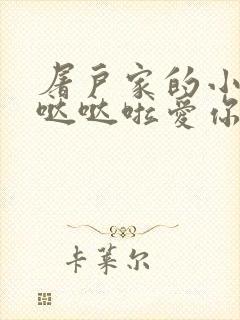 屠户家的小
哒哒啦爱你
卡莱尔